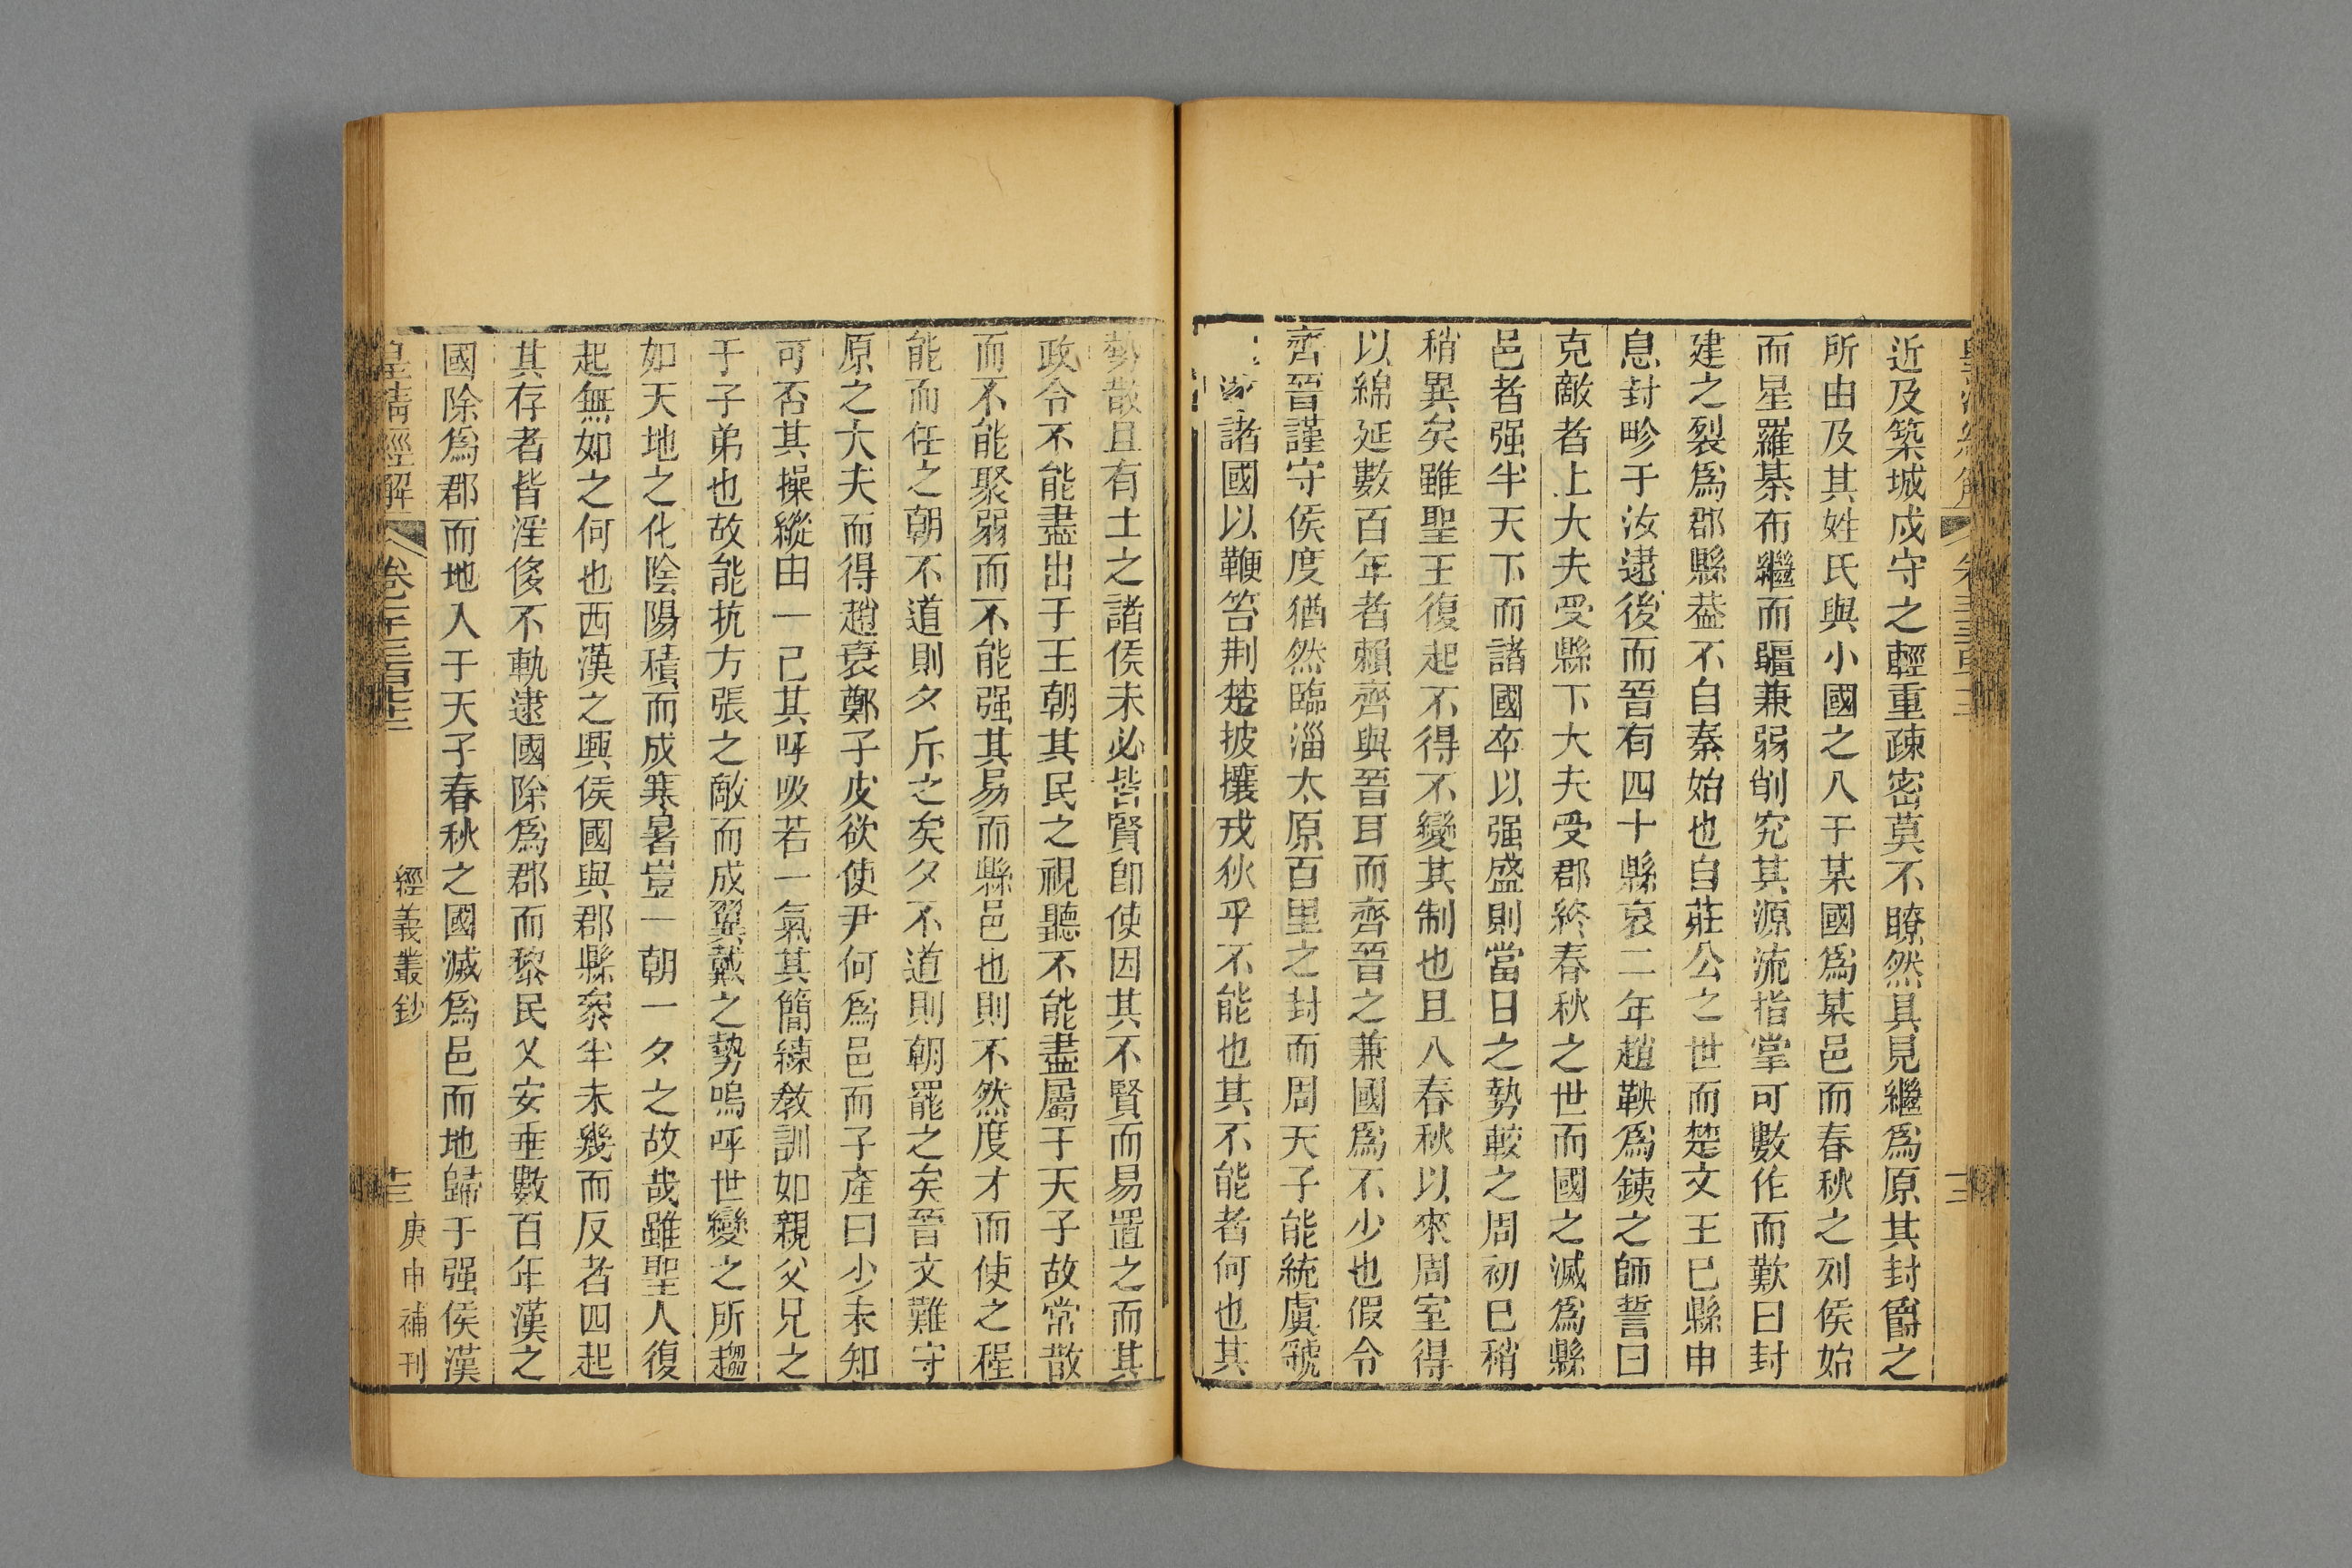 近及築城戍守之輕重疎密莫不瞭然具見繼爲原其封爵之
所由及其姓氏與小國之入于某國爲某邑而春秋之列侯始
而星羅棊布繼而疆兼弱削究其源流指掌可數作而歎曰封
建之裂爲郡縣葢不自秦始也自莊公之世而楚文王已縣申
息封畛于汝逮後而晉有四十縣哀二年趙鞅爲鐵之師誓曰
克敵者上大夫受縣下大夫受郡終春秋之世而國之滅爲縣
邑者强半天下而諸國卒以强盛則當日之勢較之周初已稍
稍異矣雖聖王復起不得不變其制也且入春秋以來周室得
以綿延數百年者賴齊與晉耳而齊晉之兼國爲不少也假令
齊晉謹守侯度猶然臨淄太原百里之封而周天子能統虞虢
諸國以鞭笞荆楚披攘戎狄乎不能也其不能者何也其
勢散且有土之諸侯未必皆賢卽使因其不賢而易置之而其
政令不能盡出于王朝其民之視聽不能盡屬于天子故常散
而不能聚弱而不能强其易而縣邑也則不然度才而使之程
能而任之朝不道則夕斥之矣夕不道則朝罷之矣晉文難守
原之大夫而得趙衰鄭子皮欲使尹何爲邑而子產曰少未知
可否其操縱由一己其呼吸若一氣其簡練敎訓如親父兄之
于子弟也故能抗方張之敵而成翼戴之勢嗚呼世變之所趨
如天地之化陰陽積而成寒暑豈一朝一夕之故哉雖聖人復
起無如之何也西漢之興侯國與郡縣叅半未幾而反者四起
其存者皆淫侈不軌逮國除爲郡而黎民乂安垂數百年漢之
國除爲郡而地入于天子春秋之國滅爲邑而地歸于强侯漢
皇清經解 經義叢鈔 庚申補刊